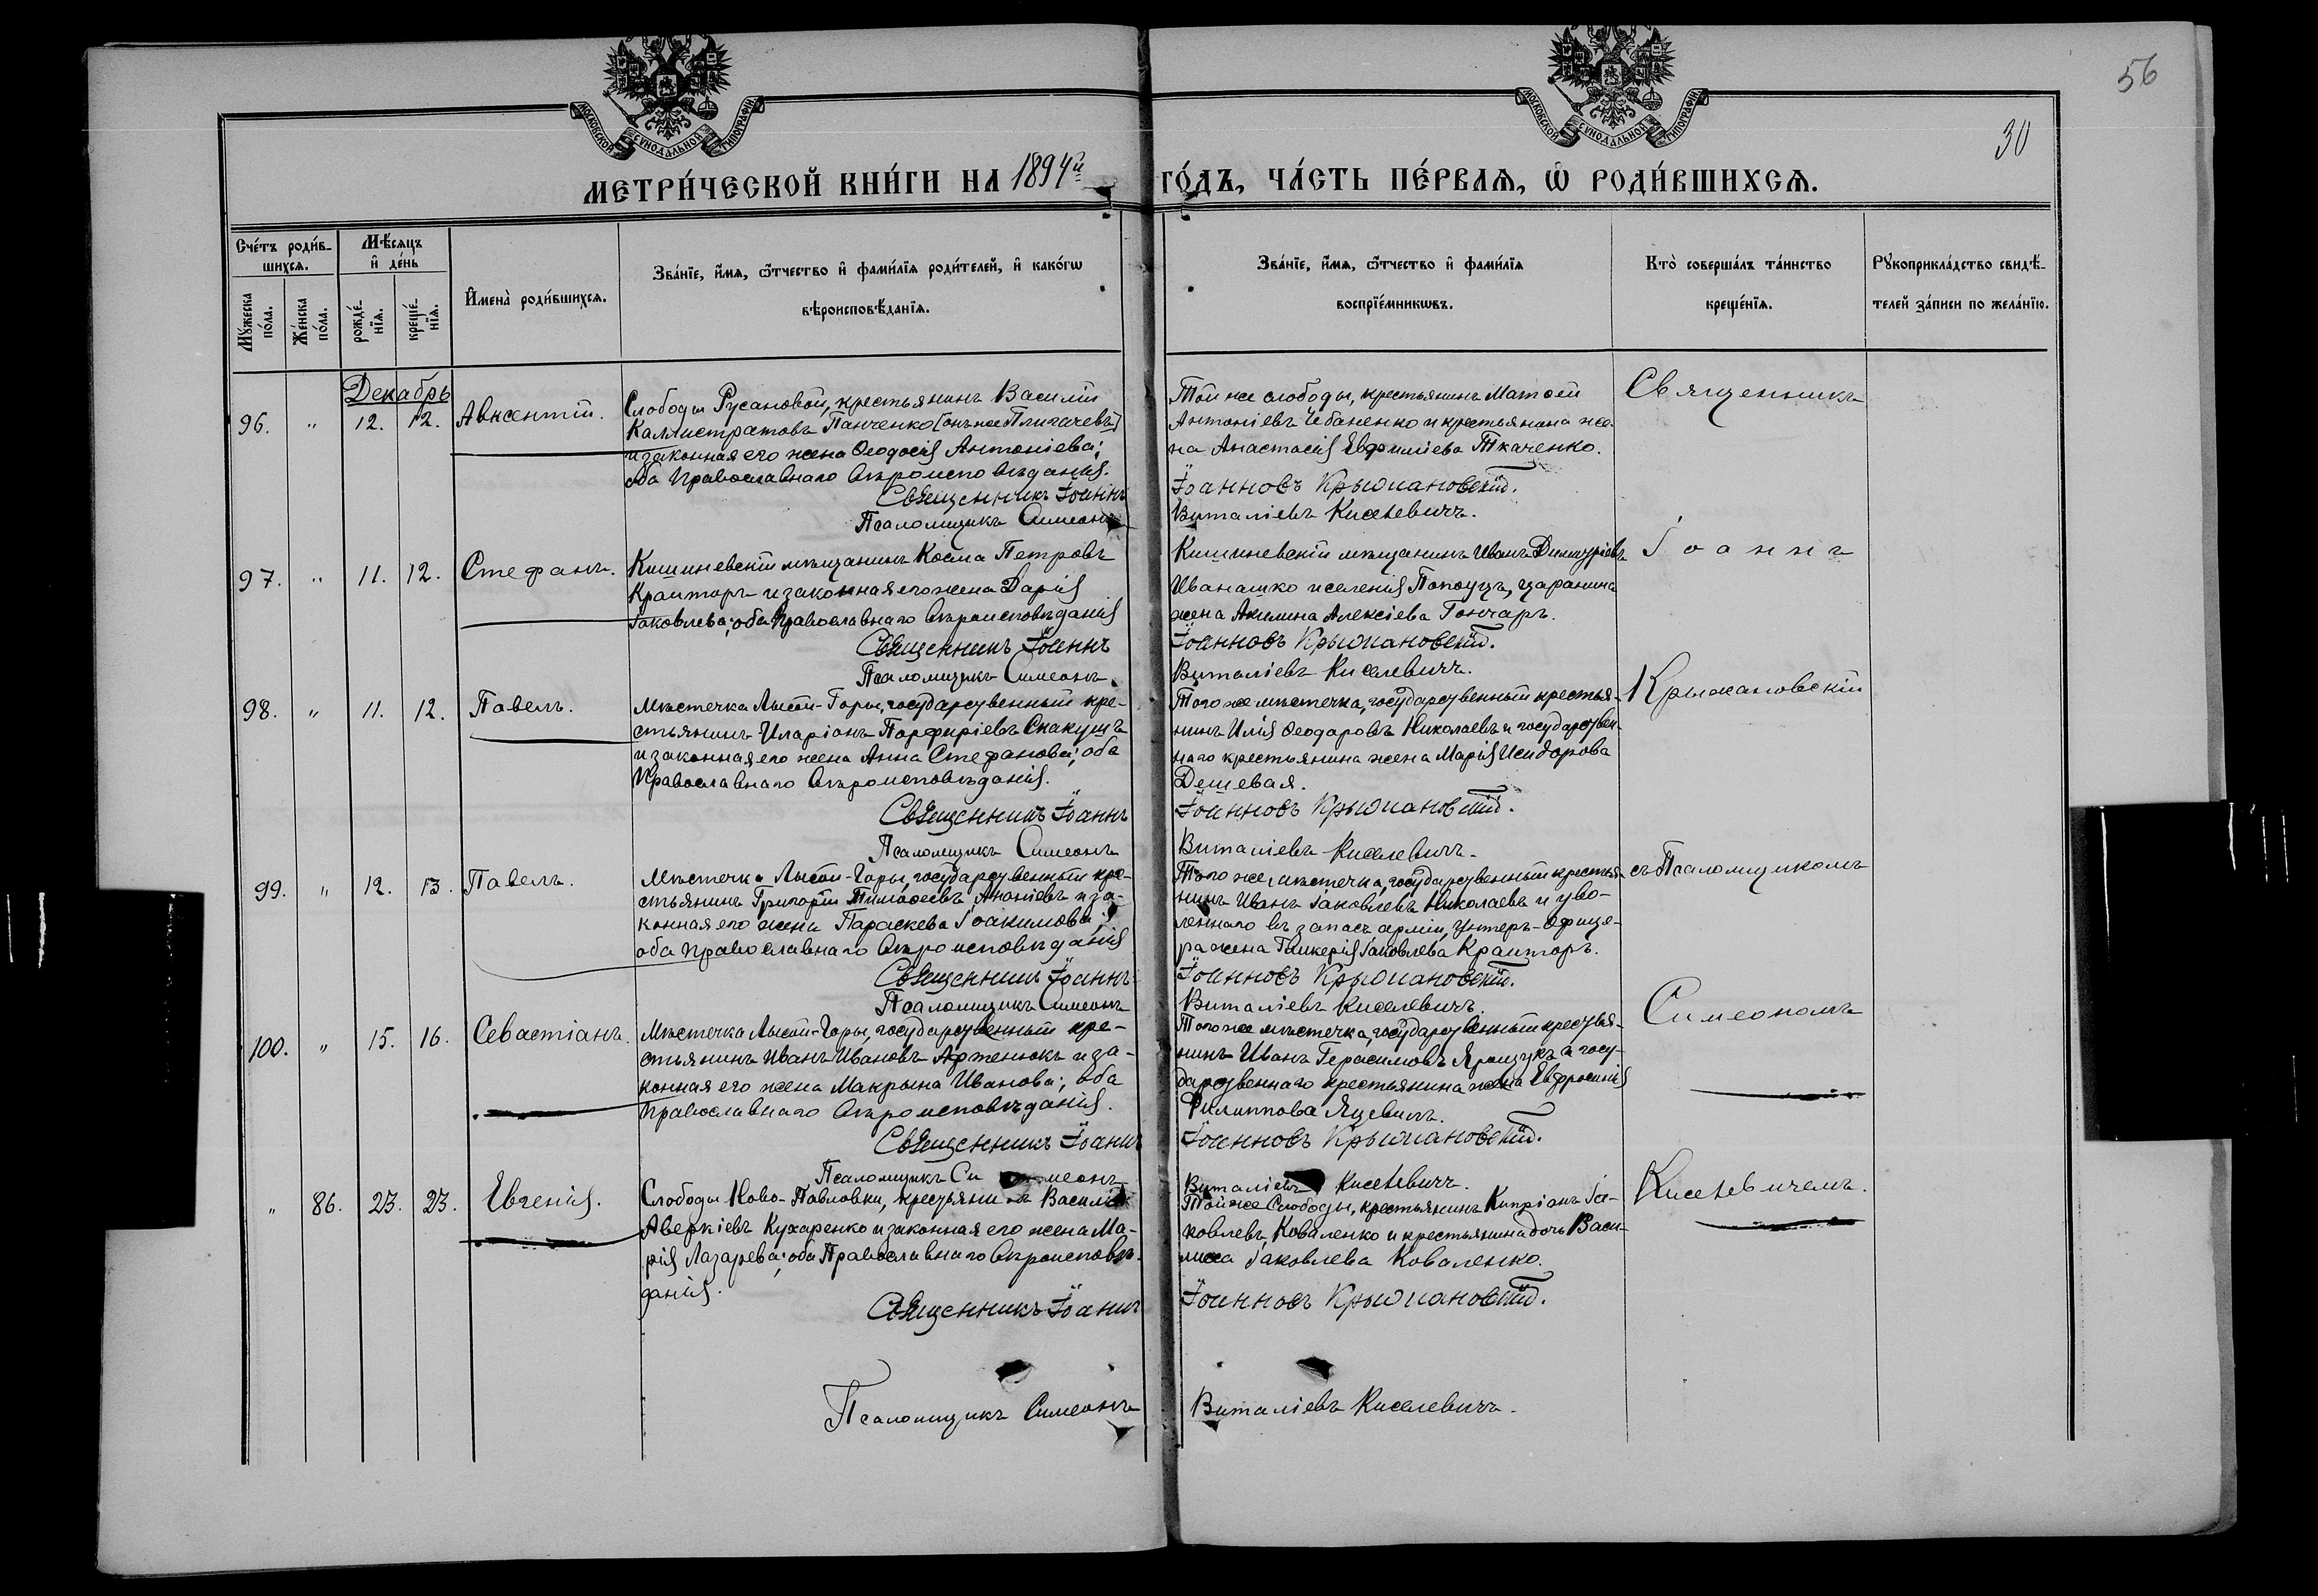 56
30
МОСКОВСКОЙ СѴНОДАЛЬНОЙ ТИПОГРАФІИ
МОСКОВСКОЙ СѴНОДАЛЬНОЙ ТИПОГРАФІИ
МЕТРИ́ЧЕСКОЙ КНИ́ГИ НА 1894й ГО́ДЪ, ЧА́СТЬ ПЕ́РВАѦ, Ѡ РОДИ́ВШИХСѦ.
Сче́тъ роди́в-
шихсѧ.
Мꙋ́жеска по́ла.
Же́нска по́ла.
Мѣ́сѧцъ и҆ де́нь
рожде́-
нїѧ.
креще́-
нїѧ.
И҆мена̀ роди́вшихсѧ.
Зва́нїе, и҆́мѧ, ѻ҆́тчество и҆ фами́лїѧ роди́телей, и҆ како́гѡ
вѣроисповѣ́данїѧ.
Зва́нїе, и҆́мѧ, ѻ҆́тчество и҆ фами́лїѧ
воспрїе́мникѡвъ.
Кто̀ соверша́лъ та́инство
креще́нїѧ.
Рꙋкоприкла́дство свидѣ́-
телей за́писи по жела́нїю.
Декабрь
96. " 12. 12. Авксентій.
Слободы Русановой, крестьянинъ Василій
Каллистратовъ Панченко
и законная его жена Ѳеодосія Антоніева;
оба Православнаго вѣроисповѣданія.
Священникъ Іоаннъ
Псаломщикъ Симеонъ
Той же слободы, крестьянинъ Матѳей
Антоніевъ Чебаненко и крестьянина же-
на Анастасія Евфиміева Ткаченко.
Іоанновъ Крыжановскій.
Виталіевъ Киселевичъ.
Священникъ
97. " 11. 12. Стефанъ.
Кишиневскій мѣщанинъ Косма Петровъ
Краиторъ и законная его жена Дарія
Іаковлева; оба Православнаго вѣроисповѣданія
Священникъ Іоаннъ
Псаломщикъ Симеонъ
Кишиневскій мѣщанинъ Иванъ Димитріевъ
Иванашко и селенія Попоуцъ, царанина
жена Акилина Алексіева Гончаръ.
Іоанновъ Крыжановскій.
Виталіевъ Киселевичъ.
Іоаннъ
98. " 11. 12. Павелъ.
Мѣстечка Лысой-Горы, государственный кре-
стьянинъ Иларіонъ Порфиріевъ Скакунъ
и законная его жена Анна Стефанова; оба
Православнаго вѣроисповѣданія.
Священникъ Іоаннъ
Псаломщикъ Симеонъ
Того же мѣстечка, государственный крестья-
нинъ Илія Ѳеодоровъ Николаевъ и государствен-
наго крестьянина жена Марія Исидорова
Дешевая.
Іоанновъ Крыжановскій.
Виталіевъ Киселевичъ.
Крыжановскій
99. " 12. 13. Павелъ.
Мѣстечка Лысой-Горы, государственный кре-
стьянинъ Григорій Тимоѳеевъ Ананіевъ и за-
конная его жена Параскева Іоакимова;
оба Православнаго вѣроисповѣданія
Священникъ Іоаннъ
Псаломщикъ Симеонъ
Того же мѣстечка, государственный крестья-
нинъ Иванъ Іаковлевъ Николаевъ и уво-
леннаго въ запасъ арміи, унтеръ-офице-
ра жена Гликерія Іаковлева Краиторъ.
Іоанновъ Крыжановскій.
Виталіевъ Киселевичъ.
съ Псаломщикомъ
100. " 15. 16. Севастіанъ.
Мѣстечка Лысой-Горы, государственный кре-
стьянинъ Иванъ Ивановъ Артенюкъ и за-
конная его жена Макрына Иванова; оба
Православнаго вѣроисповѣданія.
Священникъ Іоаннъ
Псаломщикъ Си меонъ
Того же мѣстечка, государственный крестья-
нинъ Иванъ Герасимовъ Ярощукъ и госу-
дарственнаго крестьянина жена Евфросинія
Филиппова Яцевичъ.
Іоанновъ Крыжановскій.
Виталіевъ Киселевичъ.
Симеономъ
" 86. 23. 23. Евгенія.
Слободы Ново-Павловки, крестьянинъ Василій
Аверкіевъ Кухаренко и законная его жена Ма-
рія Лазарева; оба Православнаго вѣроисповѣ-
данія.
Священникъ Іоаннъ
Псаломщикъ Симеонъ
Той же Слободы, крестьянинъ Кипріанъ Іа-
ковлевъ Коваленко и крестьянина дочь Васи-
лисса Іаковлева Коваленко.
Іоанновъ Крыжановскій.
Виталіевъ Киселевичъ.
Киселевичемъ.